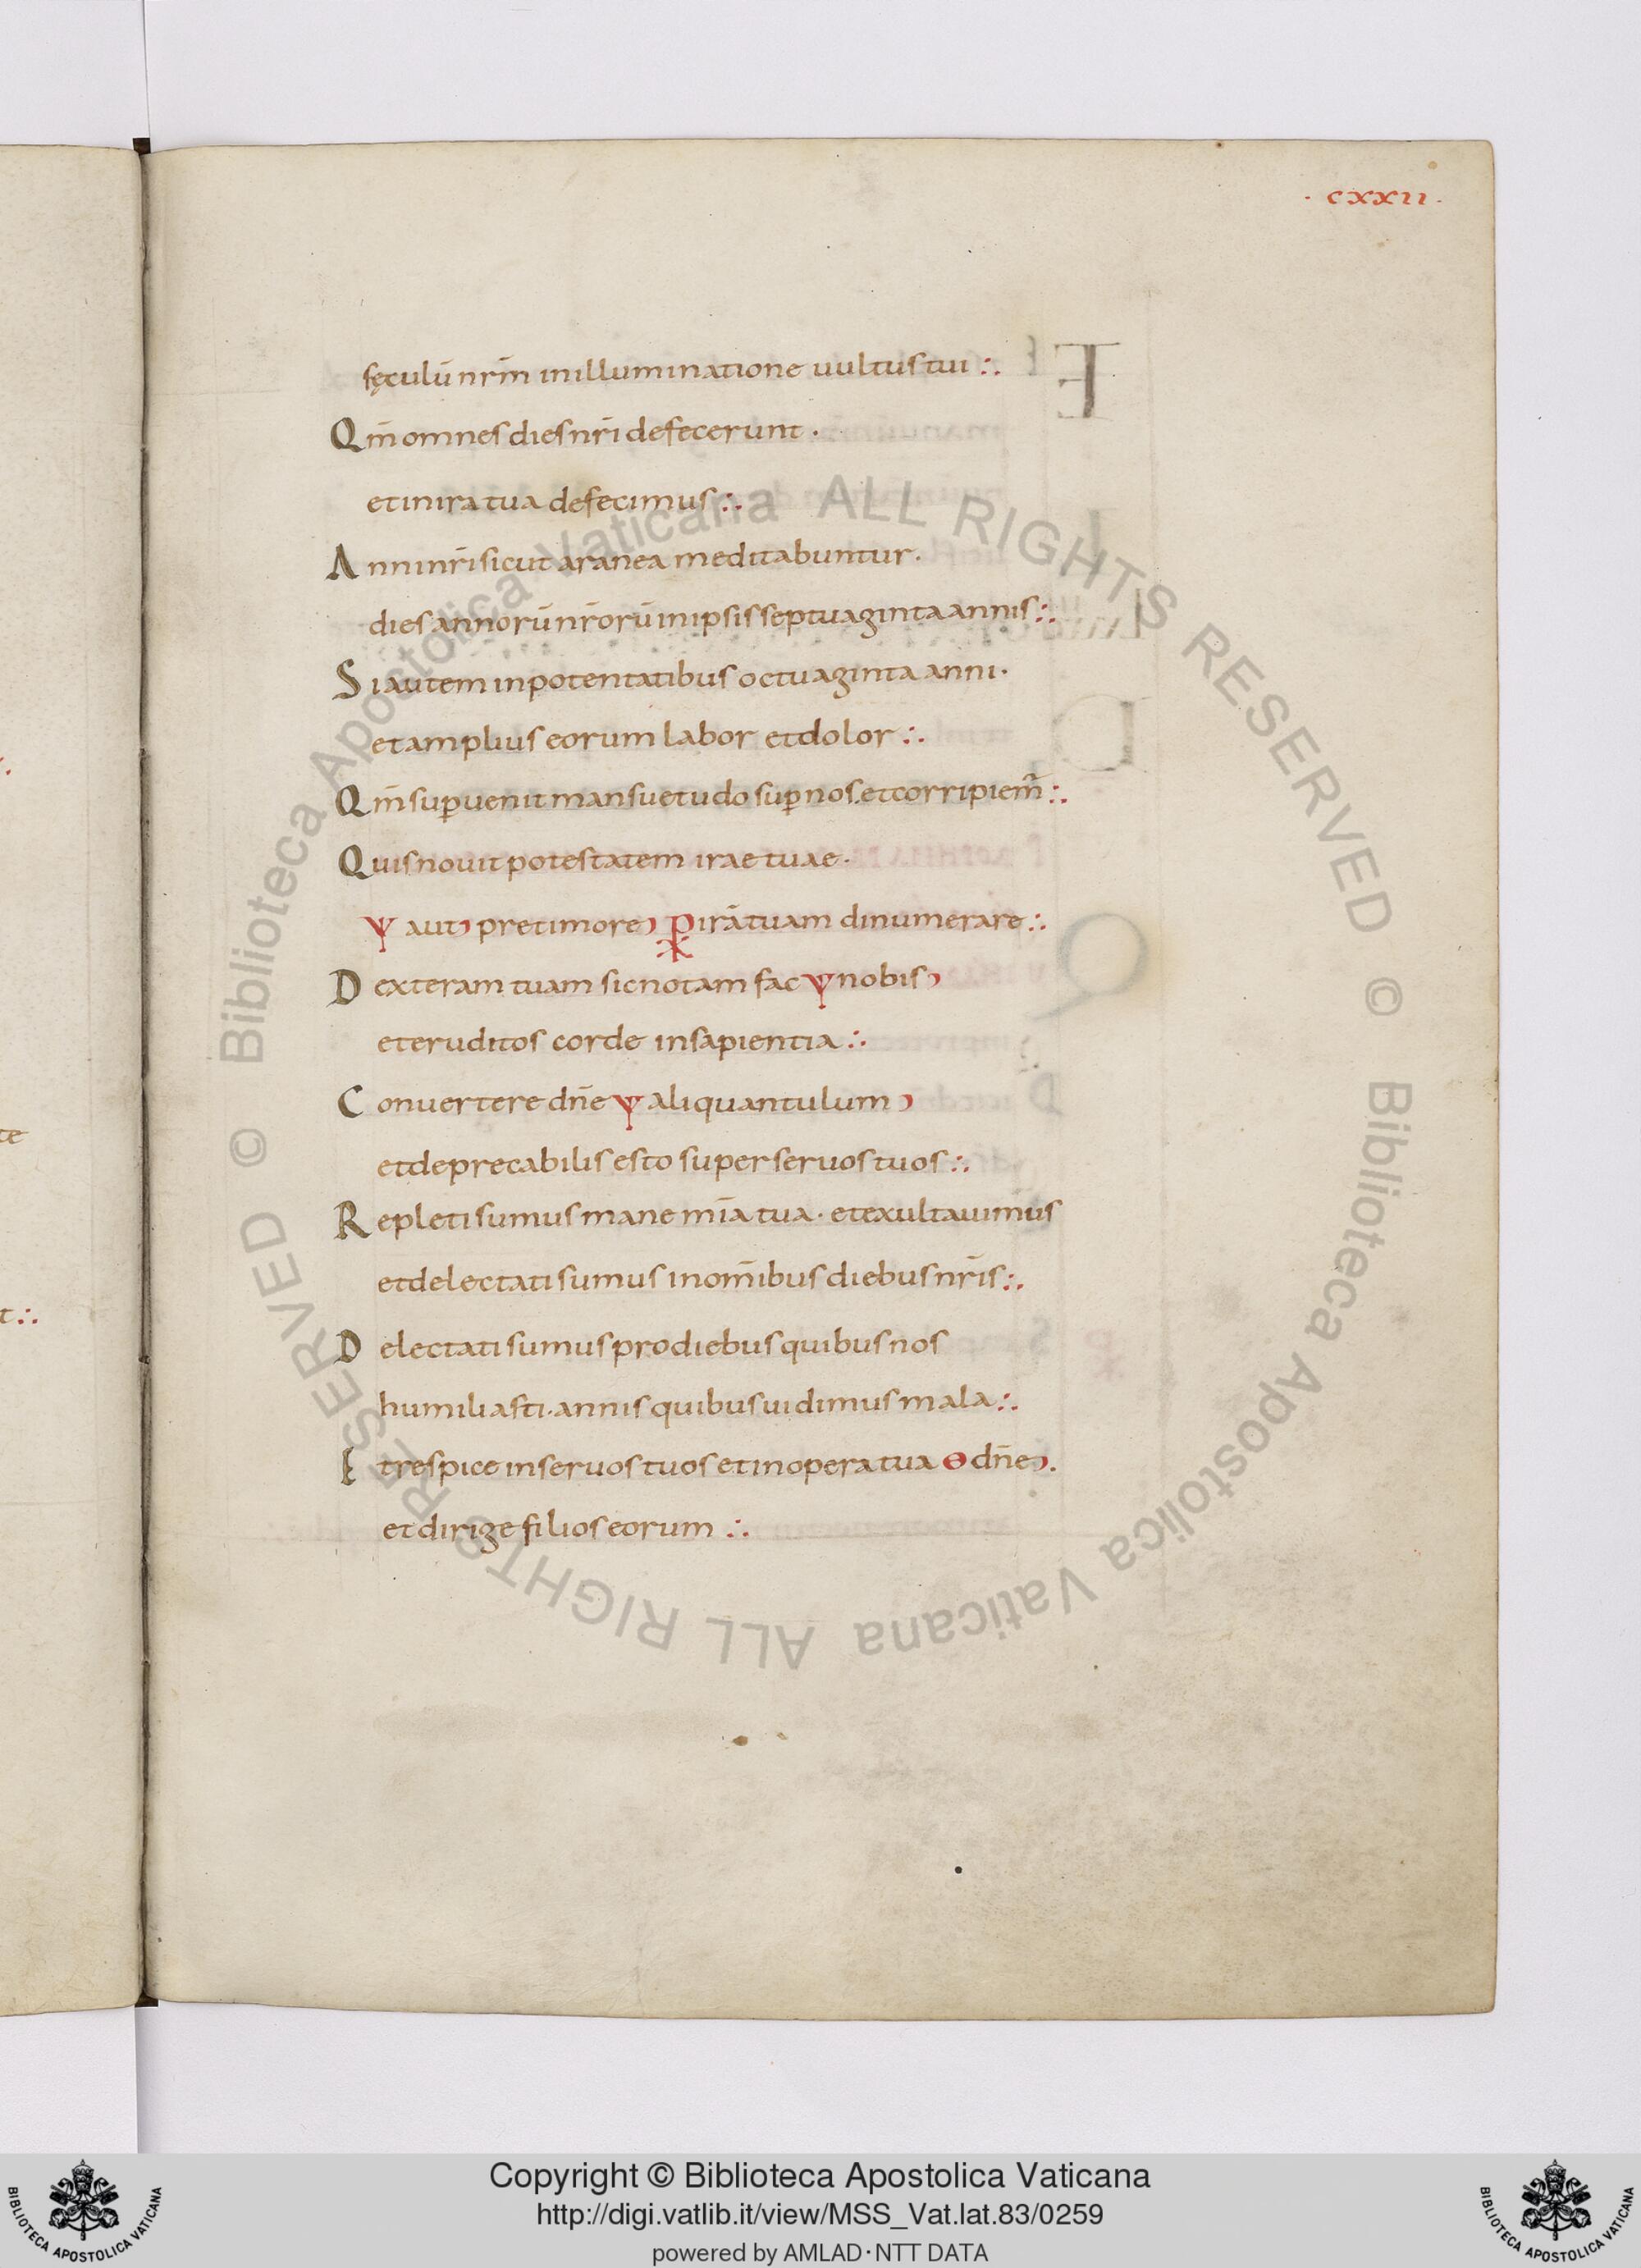 · cxxii ·
sęculū nrm̄ in illuminatione uultus tui :.
Qm̄ omnes dies nr̄i defecerunt ·
et in ira tua defecimus :.
Anni nr̄i sicut aranea meditabuntur ·
dies annorū nr̄orū in ipsis septuaginta annis :.
Si autem in potentatibus octuaginta anni ·
et amplius eorum labor et dolor :.
Qm̄ suꝑuenit mansuetudo suꝑ nos. et corripiem̄ :.
Quis nouit potestatem irae tuae ·
Ψ aut ͻ pre timore ͻ ⳩ irā tuam dinumerare :.
Dexteram tuam sic notam fac Ψ nobis ͻ
et eruditos corde in sapientia :.
Conuertere dn̄e Ψ aliquantulum ͻ
et deprecabilis esto super seruos tuos :.
Repleti sumus mane mīa tua · et exultauimus
et delectati sumus in om̄ibus diebus nr̄is :.
Delectati sumus pro diebus quibus nos
humiliasti · annis quibus uidimus mala :.
Et respice in seruos tuos et in opera tua Θ dn̄e ͻ.
et dirige filios eorum :.
te
t :.
Biblioteca Apostolica Vaticana ALL RIGHTS RESERVED ©
Biblioteca Apostolica Vaticana ALL RIGHTS RESERVED ©
BIBLIOTECA APOSTOLICA VATICANA
Copyright © Biblioteca Apostolica Vaticana
http://digi.vatlib.it/view/MSS_Vat.lat.83/0259
powered by AMLAD·NTT DATA
BIBLIOTECA APOSTOLICA VATICANA